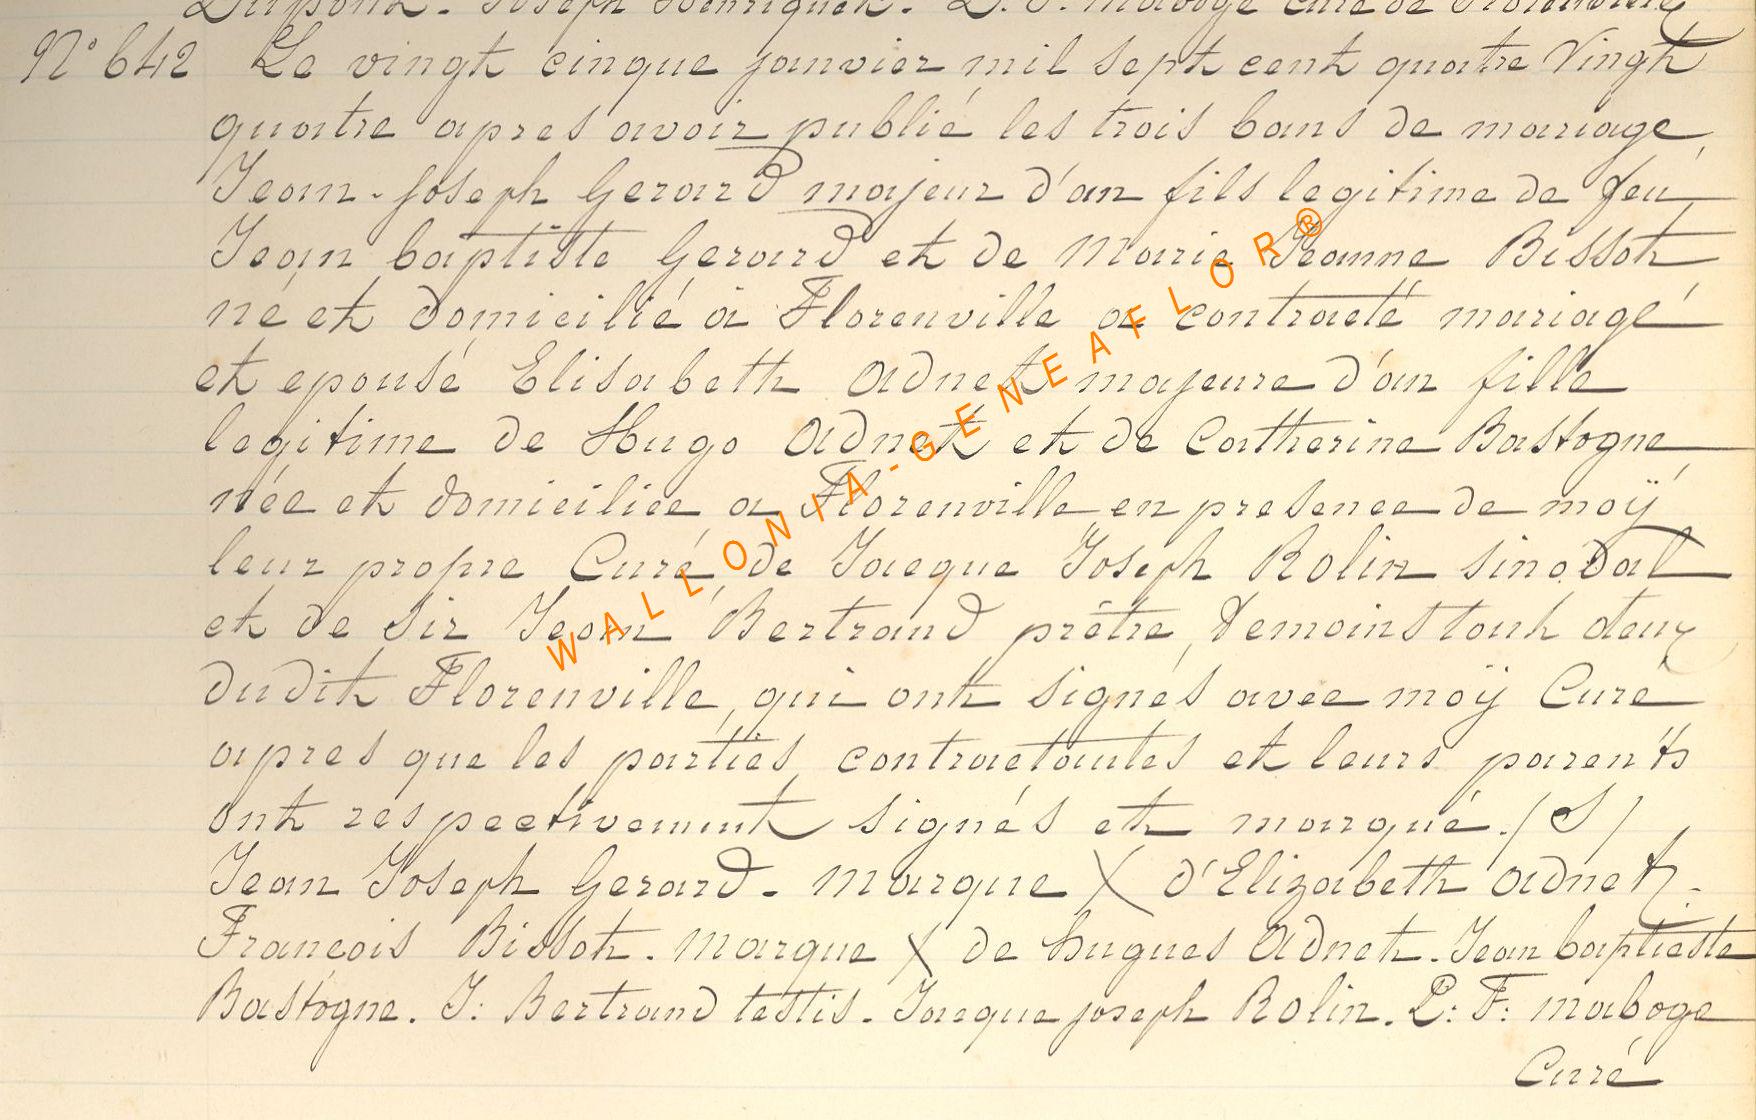 Dupont. Joseph Henriquet. L. F. maboge curé de Florenville
N° 642 Le vingt cinque janvier mil sept cent quatre Vingt
quatre apres avoir publié les trois bans de mariage,
Jean-joseph Gerard majeur d'an fils legitime de feu
Jean baptiste Gerard et de Marie Jeanne Bissot
né et domicilié à Florenville a contracté mariagé
et epousé Elisabeth Adnet majeure d'an fille
legitime de Hugo Adnet et de Catherine Bastogne
née et domiciliée a Florenville en presence de moÿ
leur propre Curé, de Jacque Joseph Rolin sinodal
et de Sir Jean Bertrand prêtre, temoins tout deux
dudit Florenville, qui ont signés avec moÿ Curé
apres que les parties contractantes et leurs parents
ont respectivement signés et marqué. (S)
Jean Joseph Gerard. Marque X d'Elizabeth Adnet.
Francois Bissot. Marque X de hugues Adnet. Jean baptieste
Bastogne. J: Bertrand testis. Jacque joseph Rolin. L: F: maboge
Curé
WALLONIA-GENEAFLOR®